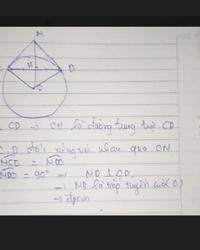 M
H
D
O
CD => OM là đường trung trực CD
D đối xứng với nhau qua OM
MCO = MDO
MDO = 90° => MD ⊥ OD
=> MD là tiếp tuyến của (O)
=> đpcm